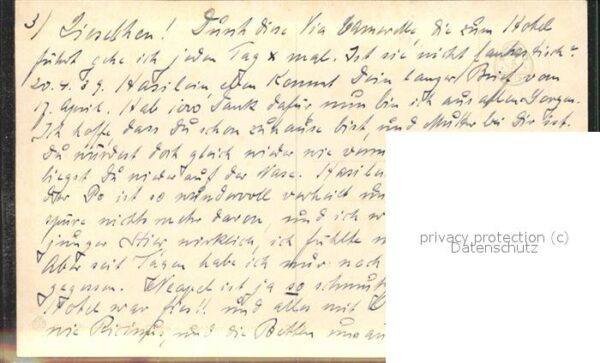 3) Lieselchen! Durch diese Via Camerelle, die zum Hotel
führt gehe ich jeden Tag x mal. Ist sie nicht fantastisch?
20.4.39. Hasilein, eben kommt Dein langer Brief vom
17. April. Hab 1000 Dank dafür nun bin ich aus allen Sorgen.
Ich hoffe dass Du schon zuhause bist, und Mutter bei Dir ist.
Du würdest doch gleich wieder wie
liegst Du wieder auf der Nase.
Der Po ist so wundervoll verheilt
spüre nichts mehr davon, und ich
junger Hier wirklich, ich fühlte
Aber seit Tagen habe ich nur noch
gegessen. Neapel ist ja so
Hotel war fies!! und alles mit
wie Ricinus, und die Betten
privacy protection (c)
Datenschutz